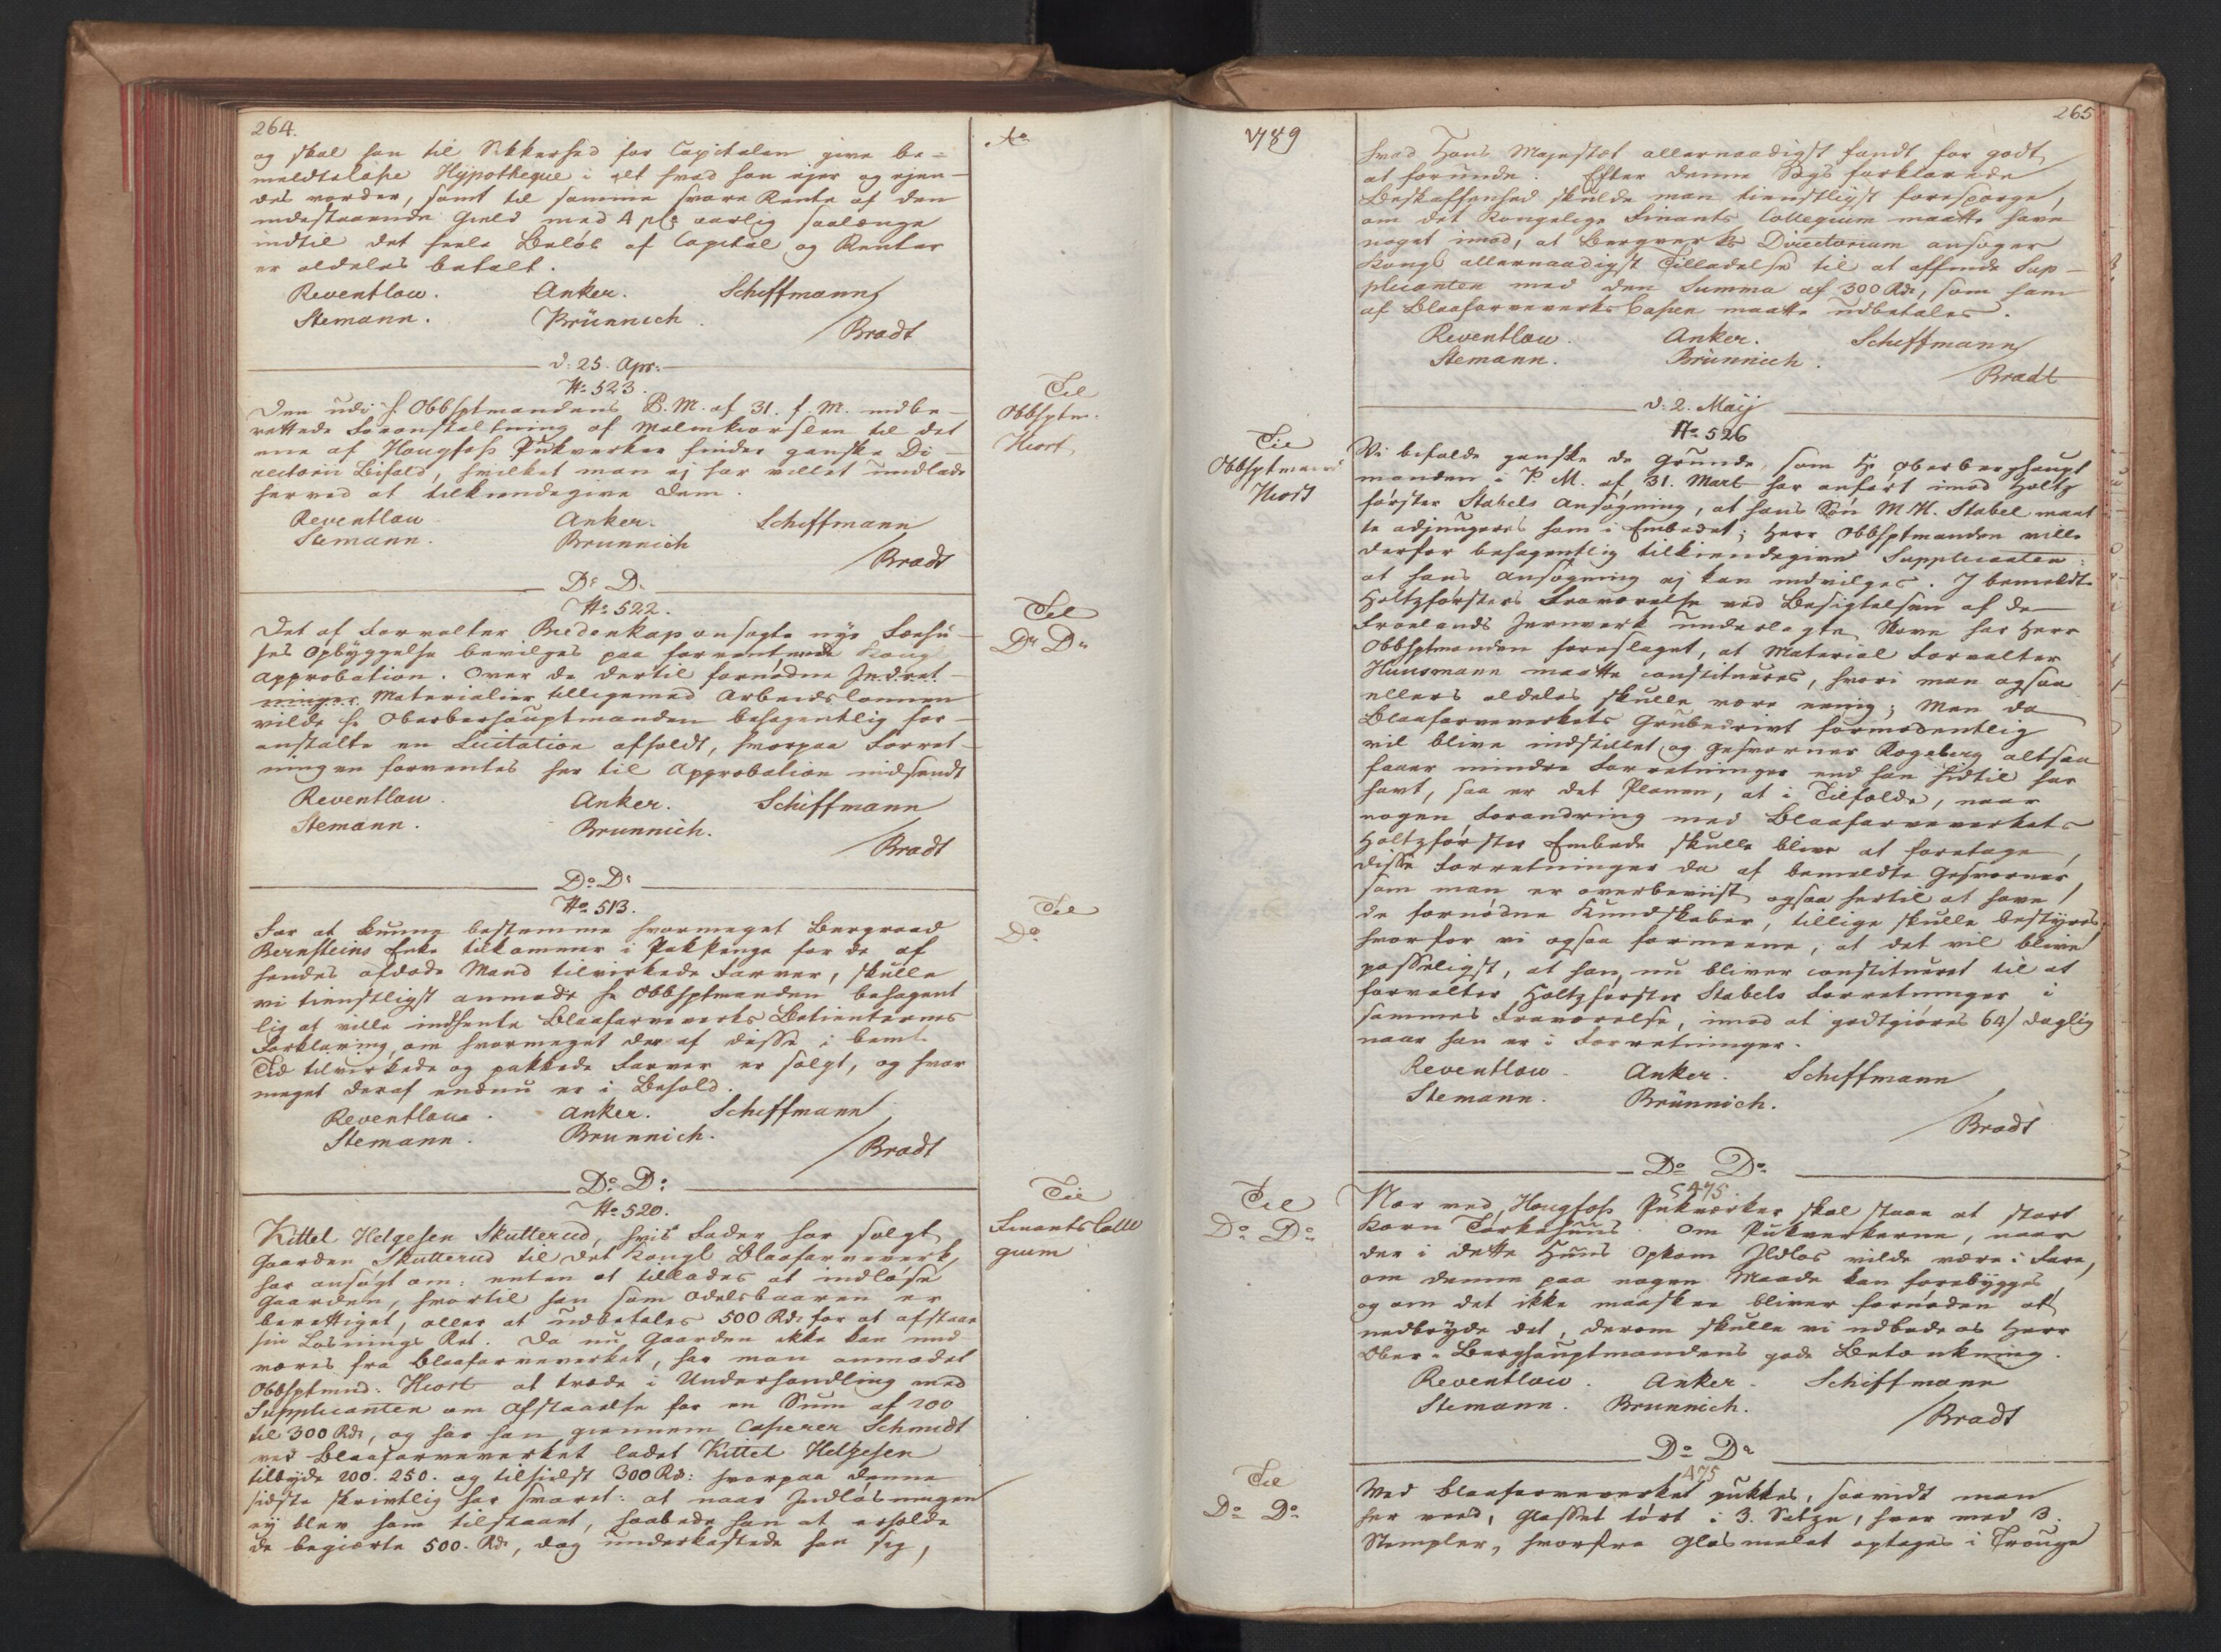 264.
Ao
og skal han til Sikkerhed for Capitalen give be=
meldte Hypotheque i alt hvad han ejer og ejen-
des vorder, samt til samme svare Rente af den
indestaaende Gield med 4 pCt aarlig saalænge
indtil det heele Beløb af Capital og Renter
er aldeles betalt.
Reventlow. Anker. Schiffmann
Stemann. Brünnich.
/Bradt
d: 25. Apr:
No 523.
Til
Obbhptm.
Hiort
Den udi H. Obbhptmandens P. M. af 31. f. M. indbe-
rettede Foranstaltning af Malmkiørselen til det
ene af Hougfoss Pukverker finder ganske Di-
rectorii Bifald, hvilket man ej har villet undlade
herved at tilkiendegive Dem.
Reventlau Anker. Schiffmann
Stemann. Brunnich
/Bradt
Do D.
No 522.
Til
Do Do
Det af Forvalter Bredenkap ansøgte nye Fæehu-
ses Opbyggelse bevilges paa forventende Kongl
Approbation. Over de dertil fornødne
Materialier tilligemed Arbeidslønnen
vilde H. Oberberhauptmanden behagentlig for-
anstalte en Licitation afholdt, hvorpaa Forret-
ningen forventes her til Approbation indsendt
Reventlau. Anker. Schiffmann
Stemann. Brunnich.
/Bradt
Do Do
No 513.
Til
Do
For at kunne bestemme hvormeget Bergraad
Bernsteins Enke tilkommer i Pakpenge for de af
hendes afdøde Mand tilvirkede Farver, skulle
vi tienstligst anmode H. Obbhptmanden behagent
lig at ville indhente Blaafarveverks Betienternes
Forklaring om hvormeget der af disse i bemt
Tid tilvirkede og pakkede Farver er solgt, og hvor
meget deraf endnu er i Behold.
Reventlau. Anker. Schiffmann
Stemann. Brunnich.
/Bradt
Do Do
No 520.
Til
Finants Colle
gium
Kittel Helgesen Skutterud, hvis Fader har solgt
Gaarden Skutterud til det Kongl Blaafarveverk,
har ansøgt om: enten at tillades at indløse
Gaarden, hvortil han som Odelsbaaren er
berettiget, eller at udbetales 500 Rdr for at afstaae
sin Løsnings Ret. Da nu Gaarden ikke kan und
væres fra Blaafarveverket, har man anmodet
Obbhptmd: Hiort at træde i Underhandling med
Supplicanten om Afstaaelse for en Sum af 200
til 300 Rdr, og har han giennem Casserer Schmidt
ved Blaafarveverket ladet Kittel Helgesen
tilbyde 200. 250. og tilsidst 300 Rd: hvorpaa denne
sidste skrivtlig har svaret: at naar Indløsningen
ey blev ham tilstaaet, haabede han at erholde
de begiærte 500. Rdr, dog underkastede han sig,
1789
265
hvad Hans Majestæt allernaadigst fandt for godt
at forunde. Efter denne Sags forklarede
Beskaffenhed skulde man tienstligst forespørge,
om det Kongelige Finants Collegium maatte have
noget imod, at Bergverks Directorium ansøger
Kongl allernaadigst Tilladelse til at affinde Sup-
plicanten med den Summa af 300 Rdr, som ham
af Blaafarveverks Cassen maatte udbetales.
Reventlau. Anker. Schiffmann
Stemann. Brünnich.
/Bradt
d: 2. Maij
No 526
Til
Obbhptmand
Hiort
Vi bifalde ganske de Grunde, som Hr Oberberghaupt
manden i P. M. af 31. Mart har anført imod Holtz
førster Stabels Ansøgning, at hans Søn M. H. Stabel maat
te adjungeres ham i Embedet; Herr Obbhptmanden ville
derfor behagentlig tilkiendegive Supplicanten:
at hans Ansøgning ej kan indvilges. I bemeldte
Holtzførsters Fraværelse ved Besigtelsen af de
Froelands Jernverk underlagte Skove har Herr
Obbhptmanden foreslaget, at Material Forvalter
Huusmann maatte constitueres, hvori man ogsaa
ellers aldeles skulle være eenig; Men da
Blaafarveverkets Grubedrivt formodentlig
vil blive indstillet, og Gesvorner Rogeberg altsaa
faaer mindre Forretninger end han hidtil har
havt, saa er det Planen, at i Tilfælde, naar
nogen Forandring med Blaafarveverkets
Holtzførster Embede skulle blive at foretage,
disse Forretninger da af bemeldte Gesvorner,
som man er overbeviist ogsaa hertil at have
de fornødne Kundskaber, tillige skulle bestyres,
hvorfor vi ogsaa formeene, at det vil blive
passeligst, at han nu bliver constitueret til at
forvalter Holtzførster Stabels Forretninger i
sammes Fraværelse, imod at godtgiøres 64/ daglig
naar han er i Forretninger.
Reventlow. Anker. Schiffmann
Stemann. Brünnich.
/Bradt
Do Do
475.
Til
Do Do
Nær ved Hougfoss Pukværker skal staae et stort
Korn Tørkehuus. Om Pukverkerne, naar
der i dette Huus Opkom Ildløs vilde være i Fare,
om denne paa nogen Maade kan forebygges
og om det ikke maaskee bliver fornøden at
nedbryde det, derom skulle vi udbede os Herr
Ober-Berghauptmandens gode Betænkning.
Reventlow. Anker. Schiffmann
Stemann. Brunnich.
/Bradt
Do Do
475
Til
Do Do
Ved Blaafarveverket pukkes, saavidt man
her veed, Glasset tørt i 3. Satze, hver med 3.
Stempler, hvorfra Glasmelet optages i Trouge